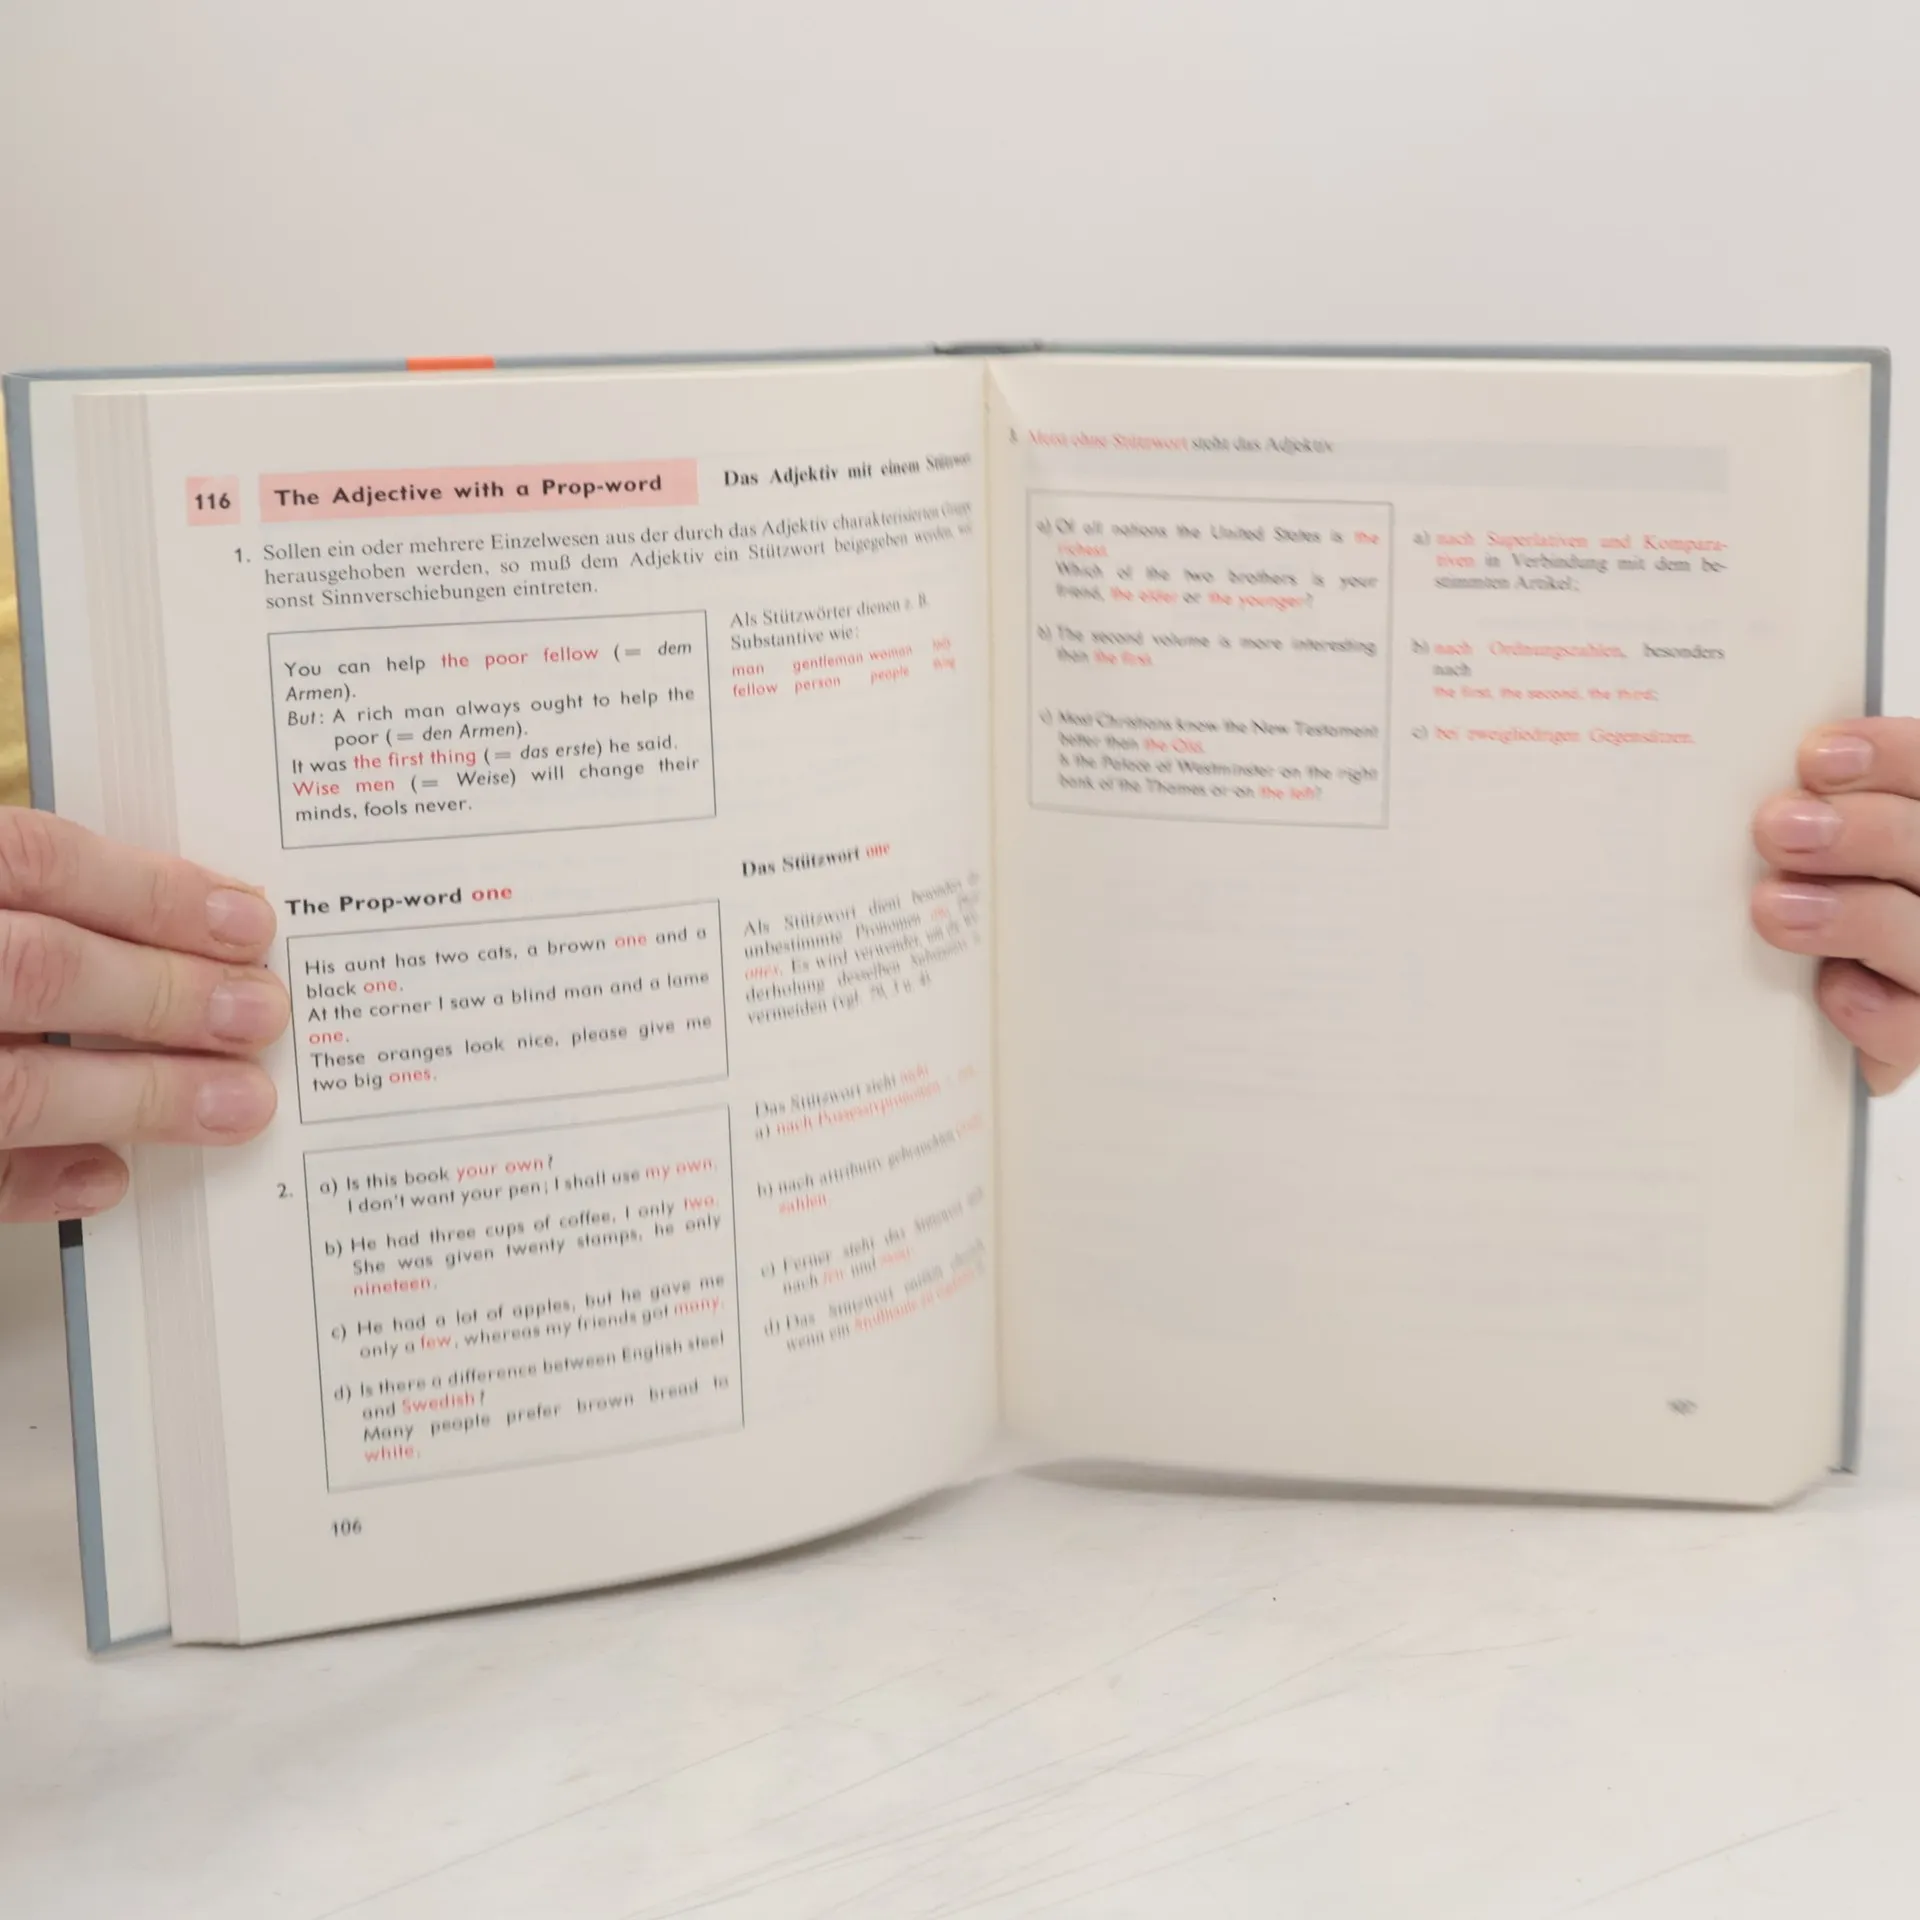 116 The Adjective with a Prop-word
Das Adjektiv mit einem
1. Sollen ein oder mehrere Einzelwesen aus der durch das Adjektiv charakterisierten
herausgehoben werden, so muß dem Adjektiv ein Stützwort beigegeben werden,
sonst Sinnverschiebungen eintreten.
You can help the poor fellow (= dem
Armen).
But: A rich man always ought to help the
poor (= den Armen).
It was the first thing (= das erste) he said.
Wise men (= Weise) will change their
minds, fools never.
Als Stützwörter dienen z. B.
Substantive wie:
man gentleman woman
fellow person people
The Prop-word one
His aunt has two cats, a brown one and a
black one.
At the corner I saw a blind man and a lame
one.
These oranges look nice, please give me
two big ones.
Das Stützwort one
Als Stützwort dient besonders
unbestimmte Pronomen
ones. Es wird verwendet, um die
derholung desselben
vermeiden (vgl.
2. a) Is this book your own?
I don't want your pen; I shall use my own.
b) He had three cups of coffee, I only two.
She was given twenty stamps, he only
nineteen.
c) He had a lot of apples, but he gave me
only a few, whereas my friends got many.
d) Is there a difference between English steel
and Swedish?
Many people prefer brown bread to
white.
Das Stützwort steht nicht
a) nach Possessivpronomen
b) nach attributiv gebrauchten
zahlen
c) Ferner steht das Stützwort
nach few und
d) Das Stützwort
wenn ein
106
3. Meist ohne Stützwort steht das Adjektiv
a) Of all nations the United States is the
richest.
Which of the two brothers is your
friend, the older or the younger?
b) The second volume is more interesting
than the first.
c) Most Christians know the New Testament
better than the Old.
Is the Palace of Westminster on the right
bank of the Thames or on the left?
a) nach Superlativen und Kompara-
tiven in Verbindung mit dem be-
stimmten Artikel;
b) nach Ordnungszahlen, besonders
nach
the first, the second, the third;
c) bei zweigliedrigen Gegensätzen.